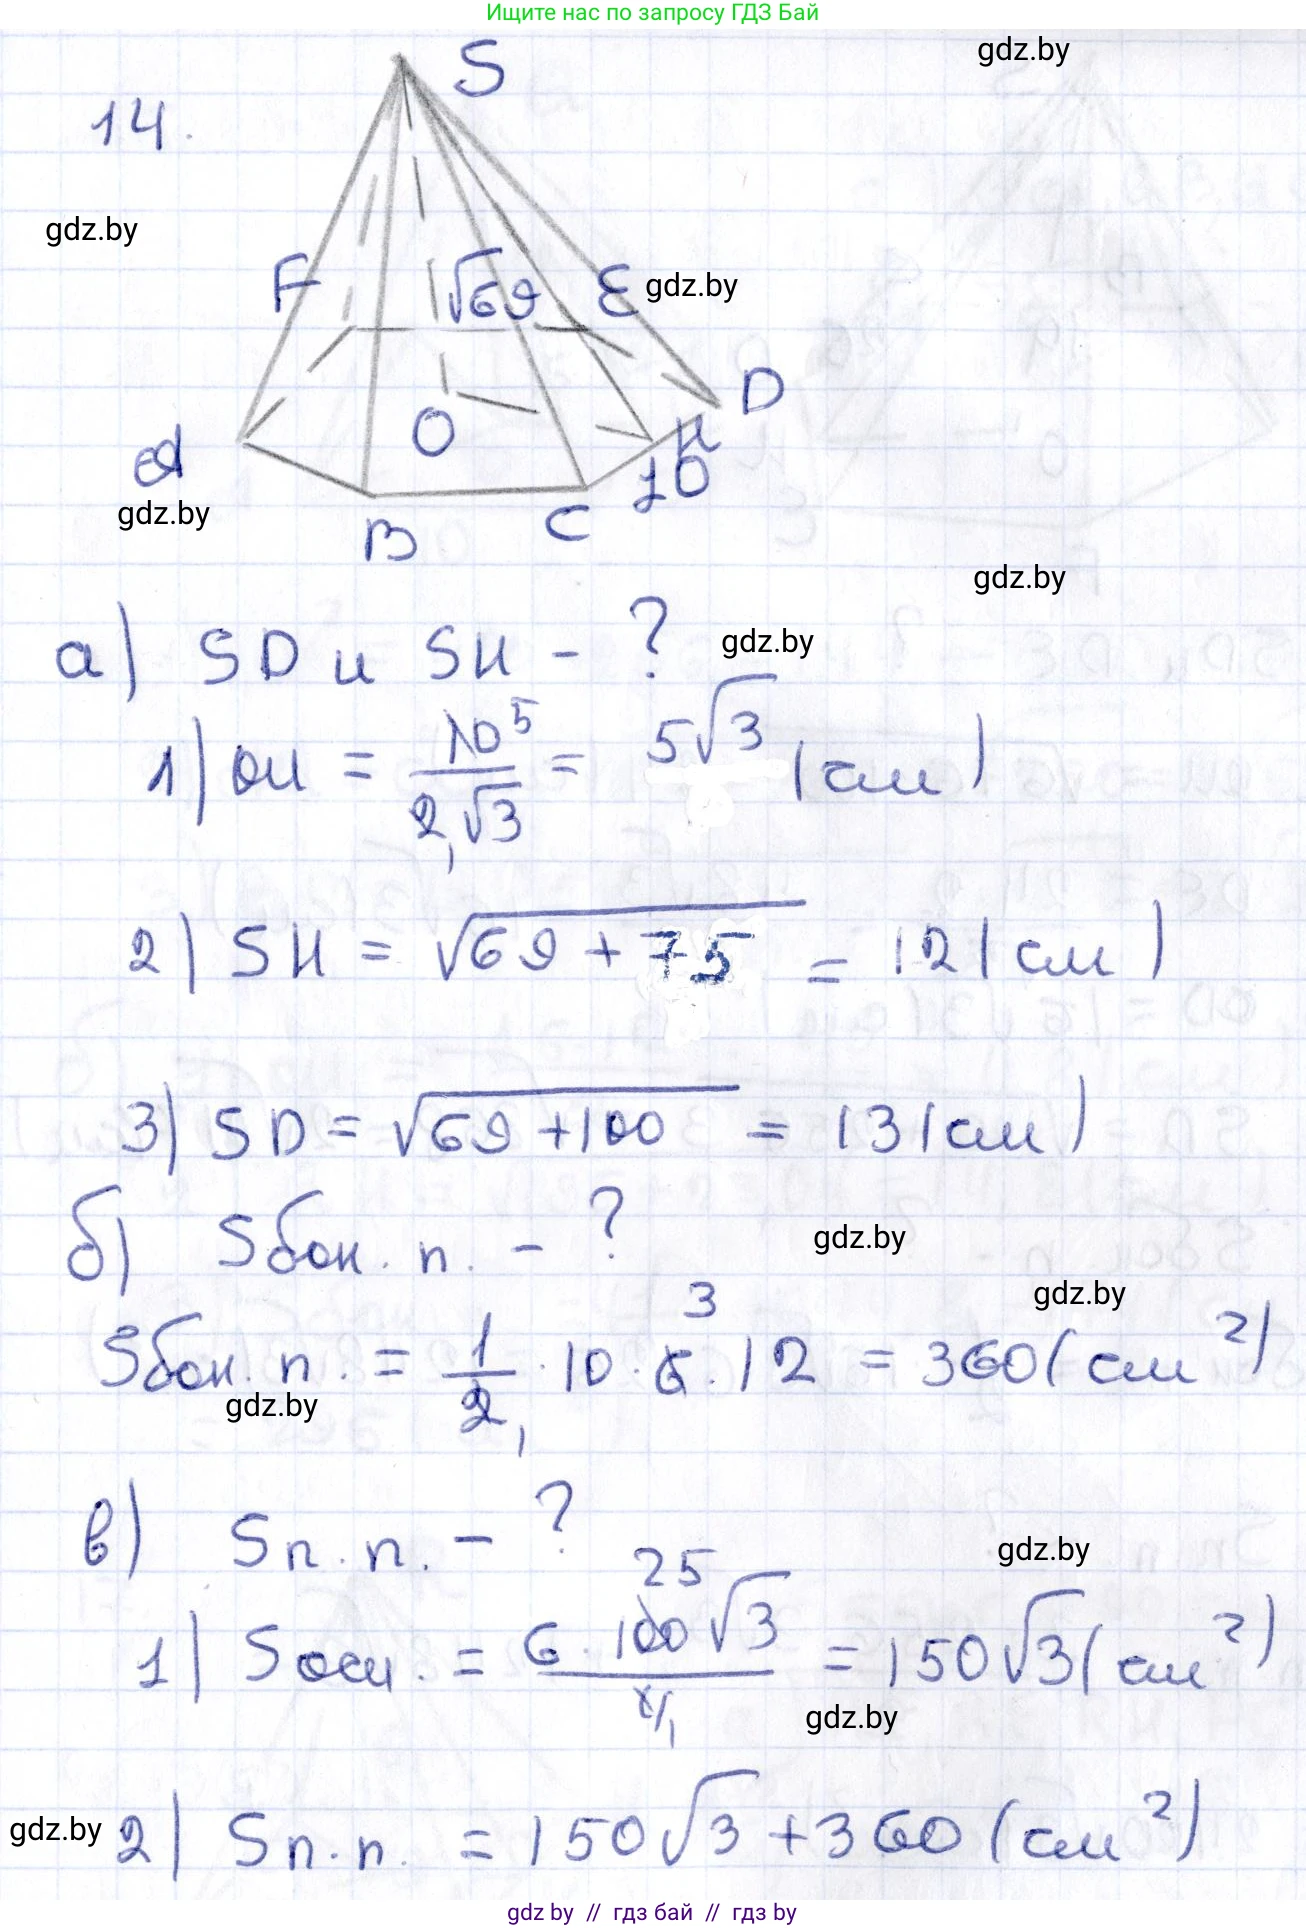 Ищите нас по запросу ГДЗ Бай
gdz.by
14.
S
gdz.by
F
√69
E
gdz.by
D
O
H
A
10
gdz.by
B
C
gdz.by
а) SD и SH - ?
gdz.by
1) OH = 10⁵/2√3 = 5√3 (см)
2) SH = √69 + 75 = 12 (см)
3) SD = √69 + 100 = 13 (см)
б) Sбок. п. - ?
gdz.by
gdz.by
Sбок. п. = 1/2 · 10 · 6³ · 12 = 360 (см²)
gdz.by
в) Sп. п. - ?
gdz.by
1) Sосн. = 6 · 100²⁵√3/4₁ = 150√3 (см²)
gdz.by
gdz.by
2) Sп. п. = 150√3 + 360 (см²)
gdz by // гдз бай // гдз by